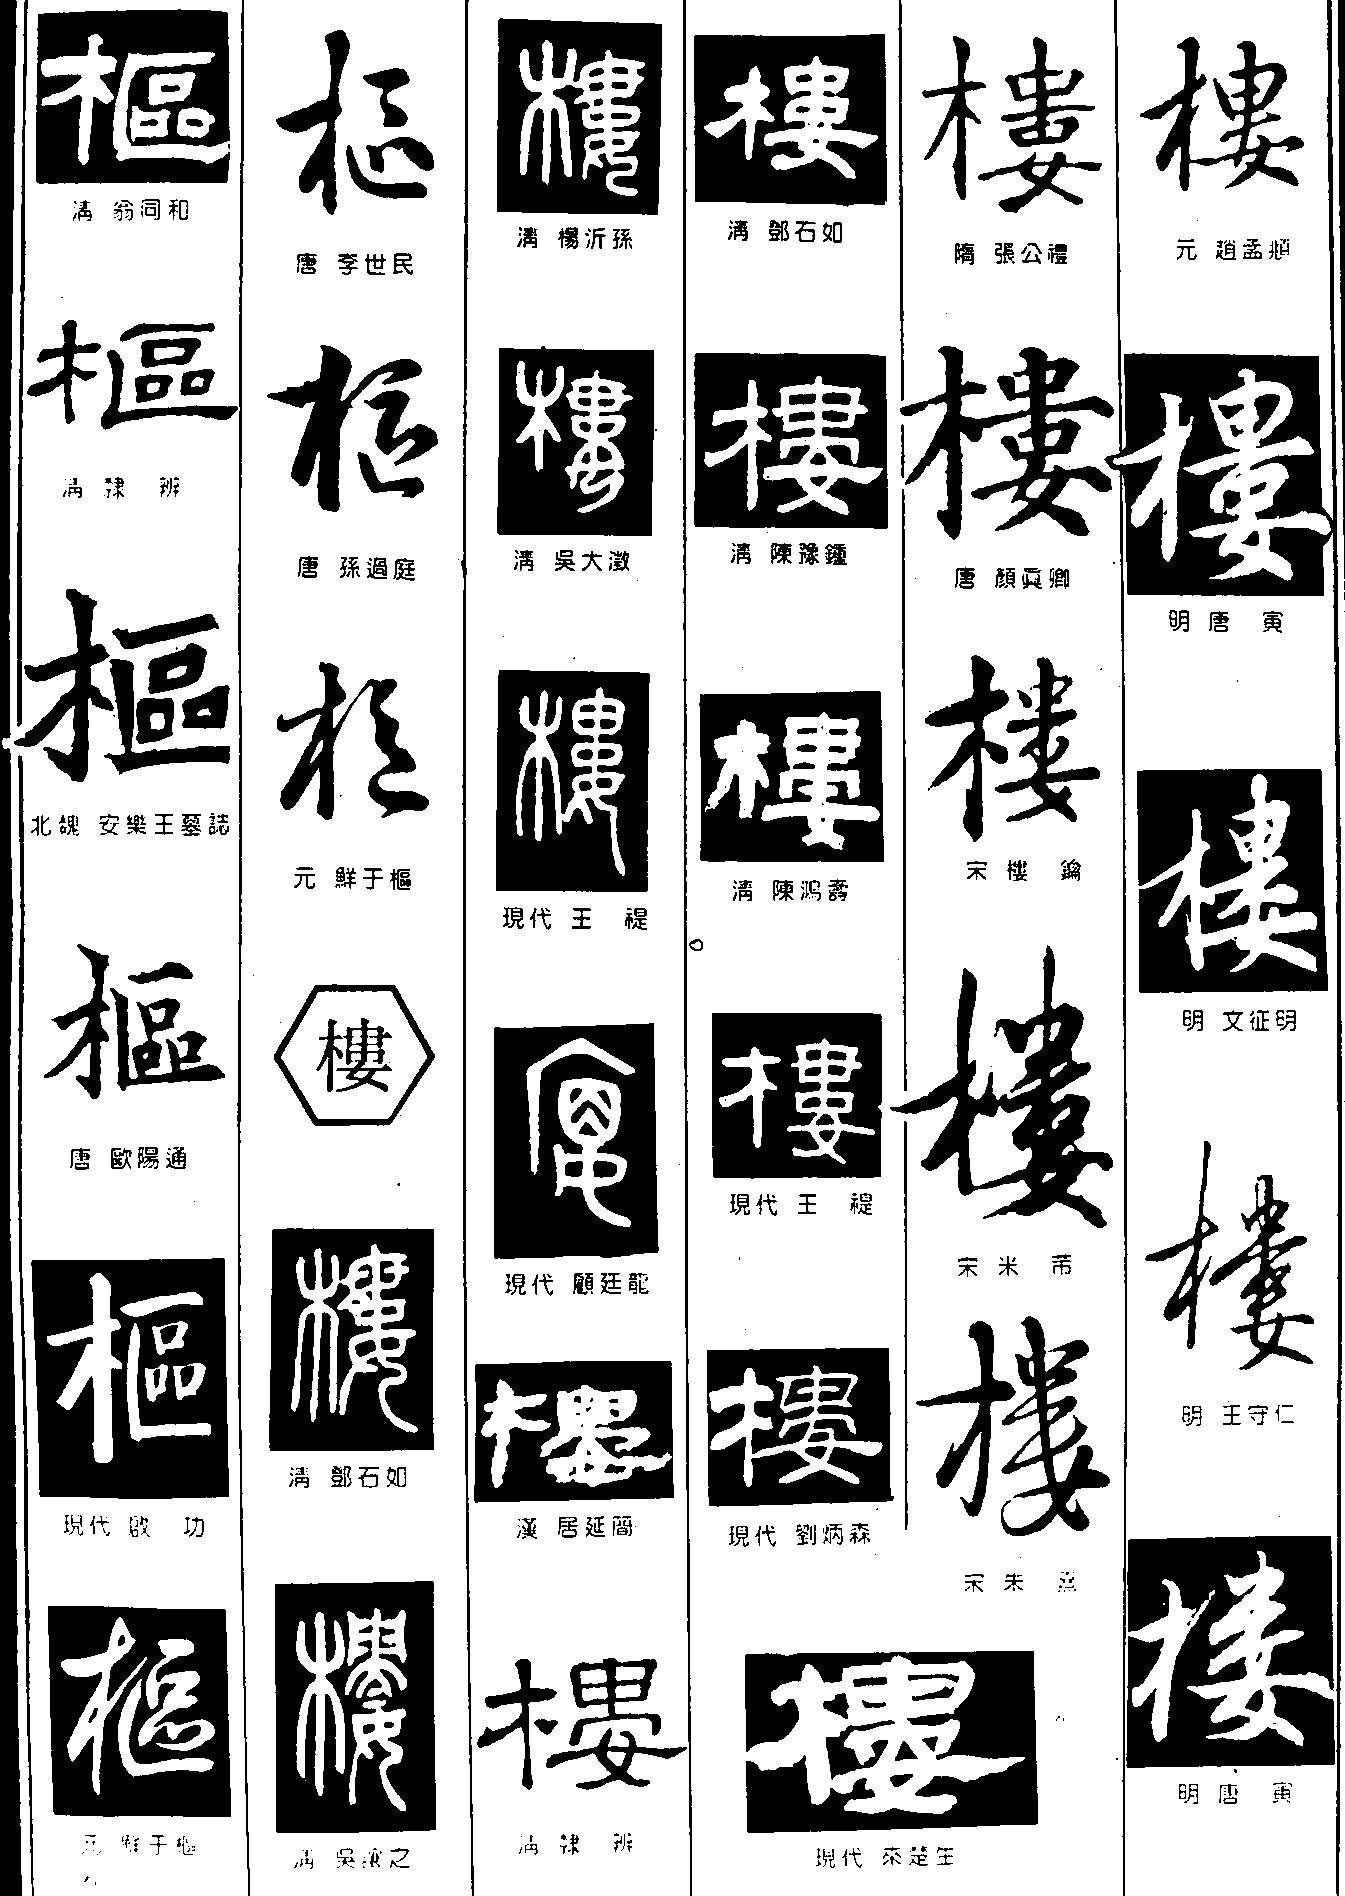 樞
清 翁同和
樞
清 隸 辨
樞
北魏 安樂王墓誌
樞
唐 歐陽通
樞
現代 啟 功
樞
元 鮮于樞
樞
唐 李世民
樞
唐 孫過庭
樞
元 鮮于樞
樓
樓
清 鄧石如
樓
清 吳讓之
樓
清 楊沂孫
樓
清 吳大澂
樓
現代 王 禔
現代 顧廷龍
樓
漢 居延簡
樓
清 隸 辨
樓
清 鄧石如
樓
清 陳豫鍾
樓
清 陳鴻壽
樓
現代 王 禔
樓
現代 劉炳森
樓
現代 來楚生
樓
隋 張公禮
樓
唐 顏真卿
樓
宋 樓 鑰
樓
宋 米 芾
樓
宋 朱 熹
樓
元 趙孟頫
樓
明 唐 寅
樓
明 文征明
樓
明 王守仁
樓
明 唐 寅